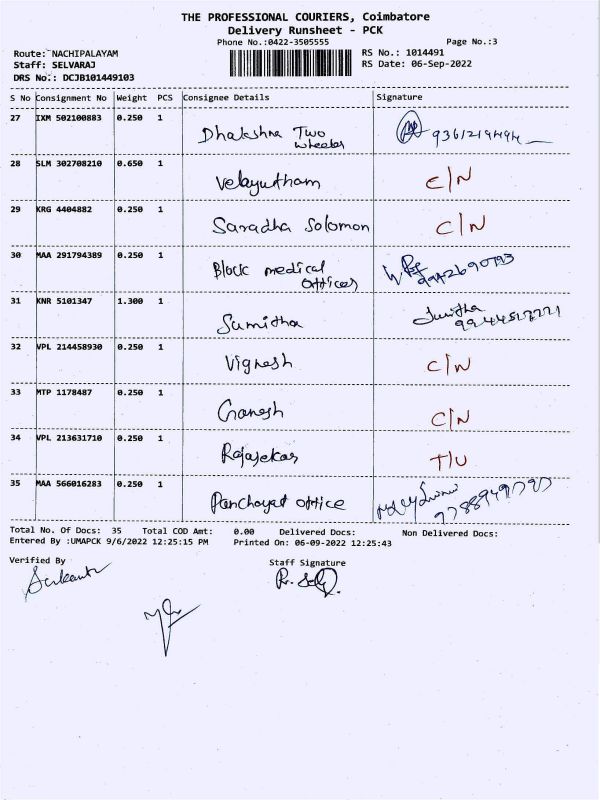 THE PROFESSIONAL COURIERS, Coimbatore
Delivery Runsheet - PCK
Phone No.:0422-3505555 Page No.:3
Route: NACHIPALAYAM RS No.: 1014491
Staff: SELVARAJ RS Date: 06-Sep-2022
DRS No.: DCJB101449103
S No Consignment No Weight PCS Consignee Details Signature
27 IXM 502100883 0.250 1
Dhakshna Two
wheeler
28 SLM 302708210 0.650 1
Velayutham C/N
29 KRG 4404882 0.250 1
Saradha Solomon C/N
30 MAA 291794389 0.250 1
Block medical
Officer
31 KNR 5101347 1.300 1
Sumitha
32 VPL 214458930 0.250 1
Vignesh C/N
33 MTP 1178487 0.250 1
Ganesh C/N
34 VPL 213631710 0.250 1
Rajasekar T/U
35 MAA 566016283 0.250 1
Panchayat office
Total No. Of Docs: 35 Total COD Amt: 0.00 Delivered Docs: Non Delivered Docs:
Entered By :UMAPCK 9/6/2022 12:25:15 PM Printed On: 06-09-2022 12:25:43
Verified By Staff Signature